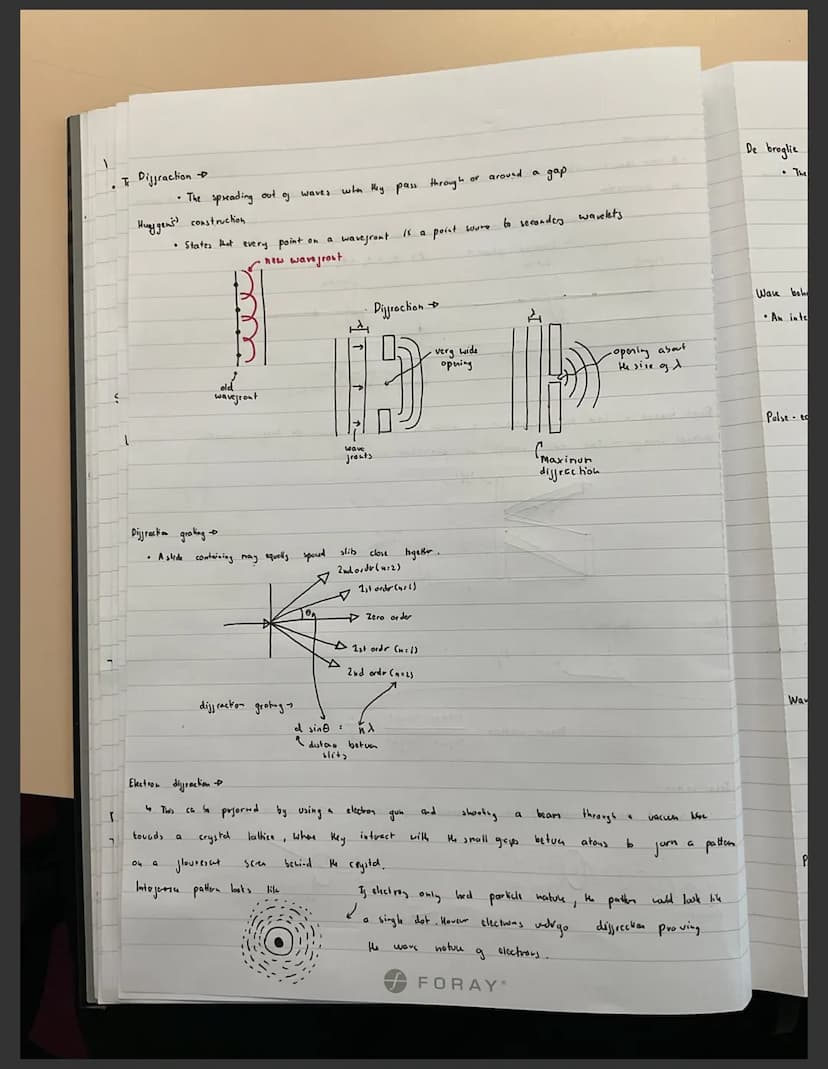 Diffraction →
• The spreading out of waves when they pass through or around a gap
Huygens' construction
• States that every point on a wavefront is a point source to secondary wavelets
new wavefront
old
wavefront
Diffraction →
λ
very wide
opening
wave
fronts
λ
opening about
the size of λ
Maximum
diffraction
Diffraction grating →
• A slide containing many equally spaced slits close together.
2nd order (n=2)
1st order (n=1)
θ
Zero order
1st order (n=1)
2nd order (n=2)
diffraction grating →
d sinθ = nλ
distance between
slits
Electron diffraction →
↳ This can be performed by using a electron gun and shooting a beam through a vacuum tube
towards a crystal lattice, where they interact with the small gaps between atoms to form a pattern
on a flourescent screen behind the crystal.
Interference pattern looks like
If electrons only had particle nature, the pattern would look like
a single dot. However electrons undergo diffraction proving
the wave nature of electrons.
FORAY
De broglie
• The
Wave beha
• An inte
Pulse - ec
Wav